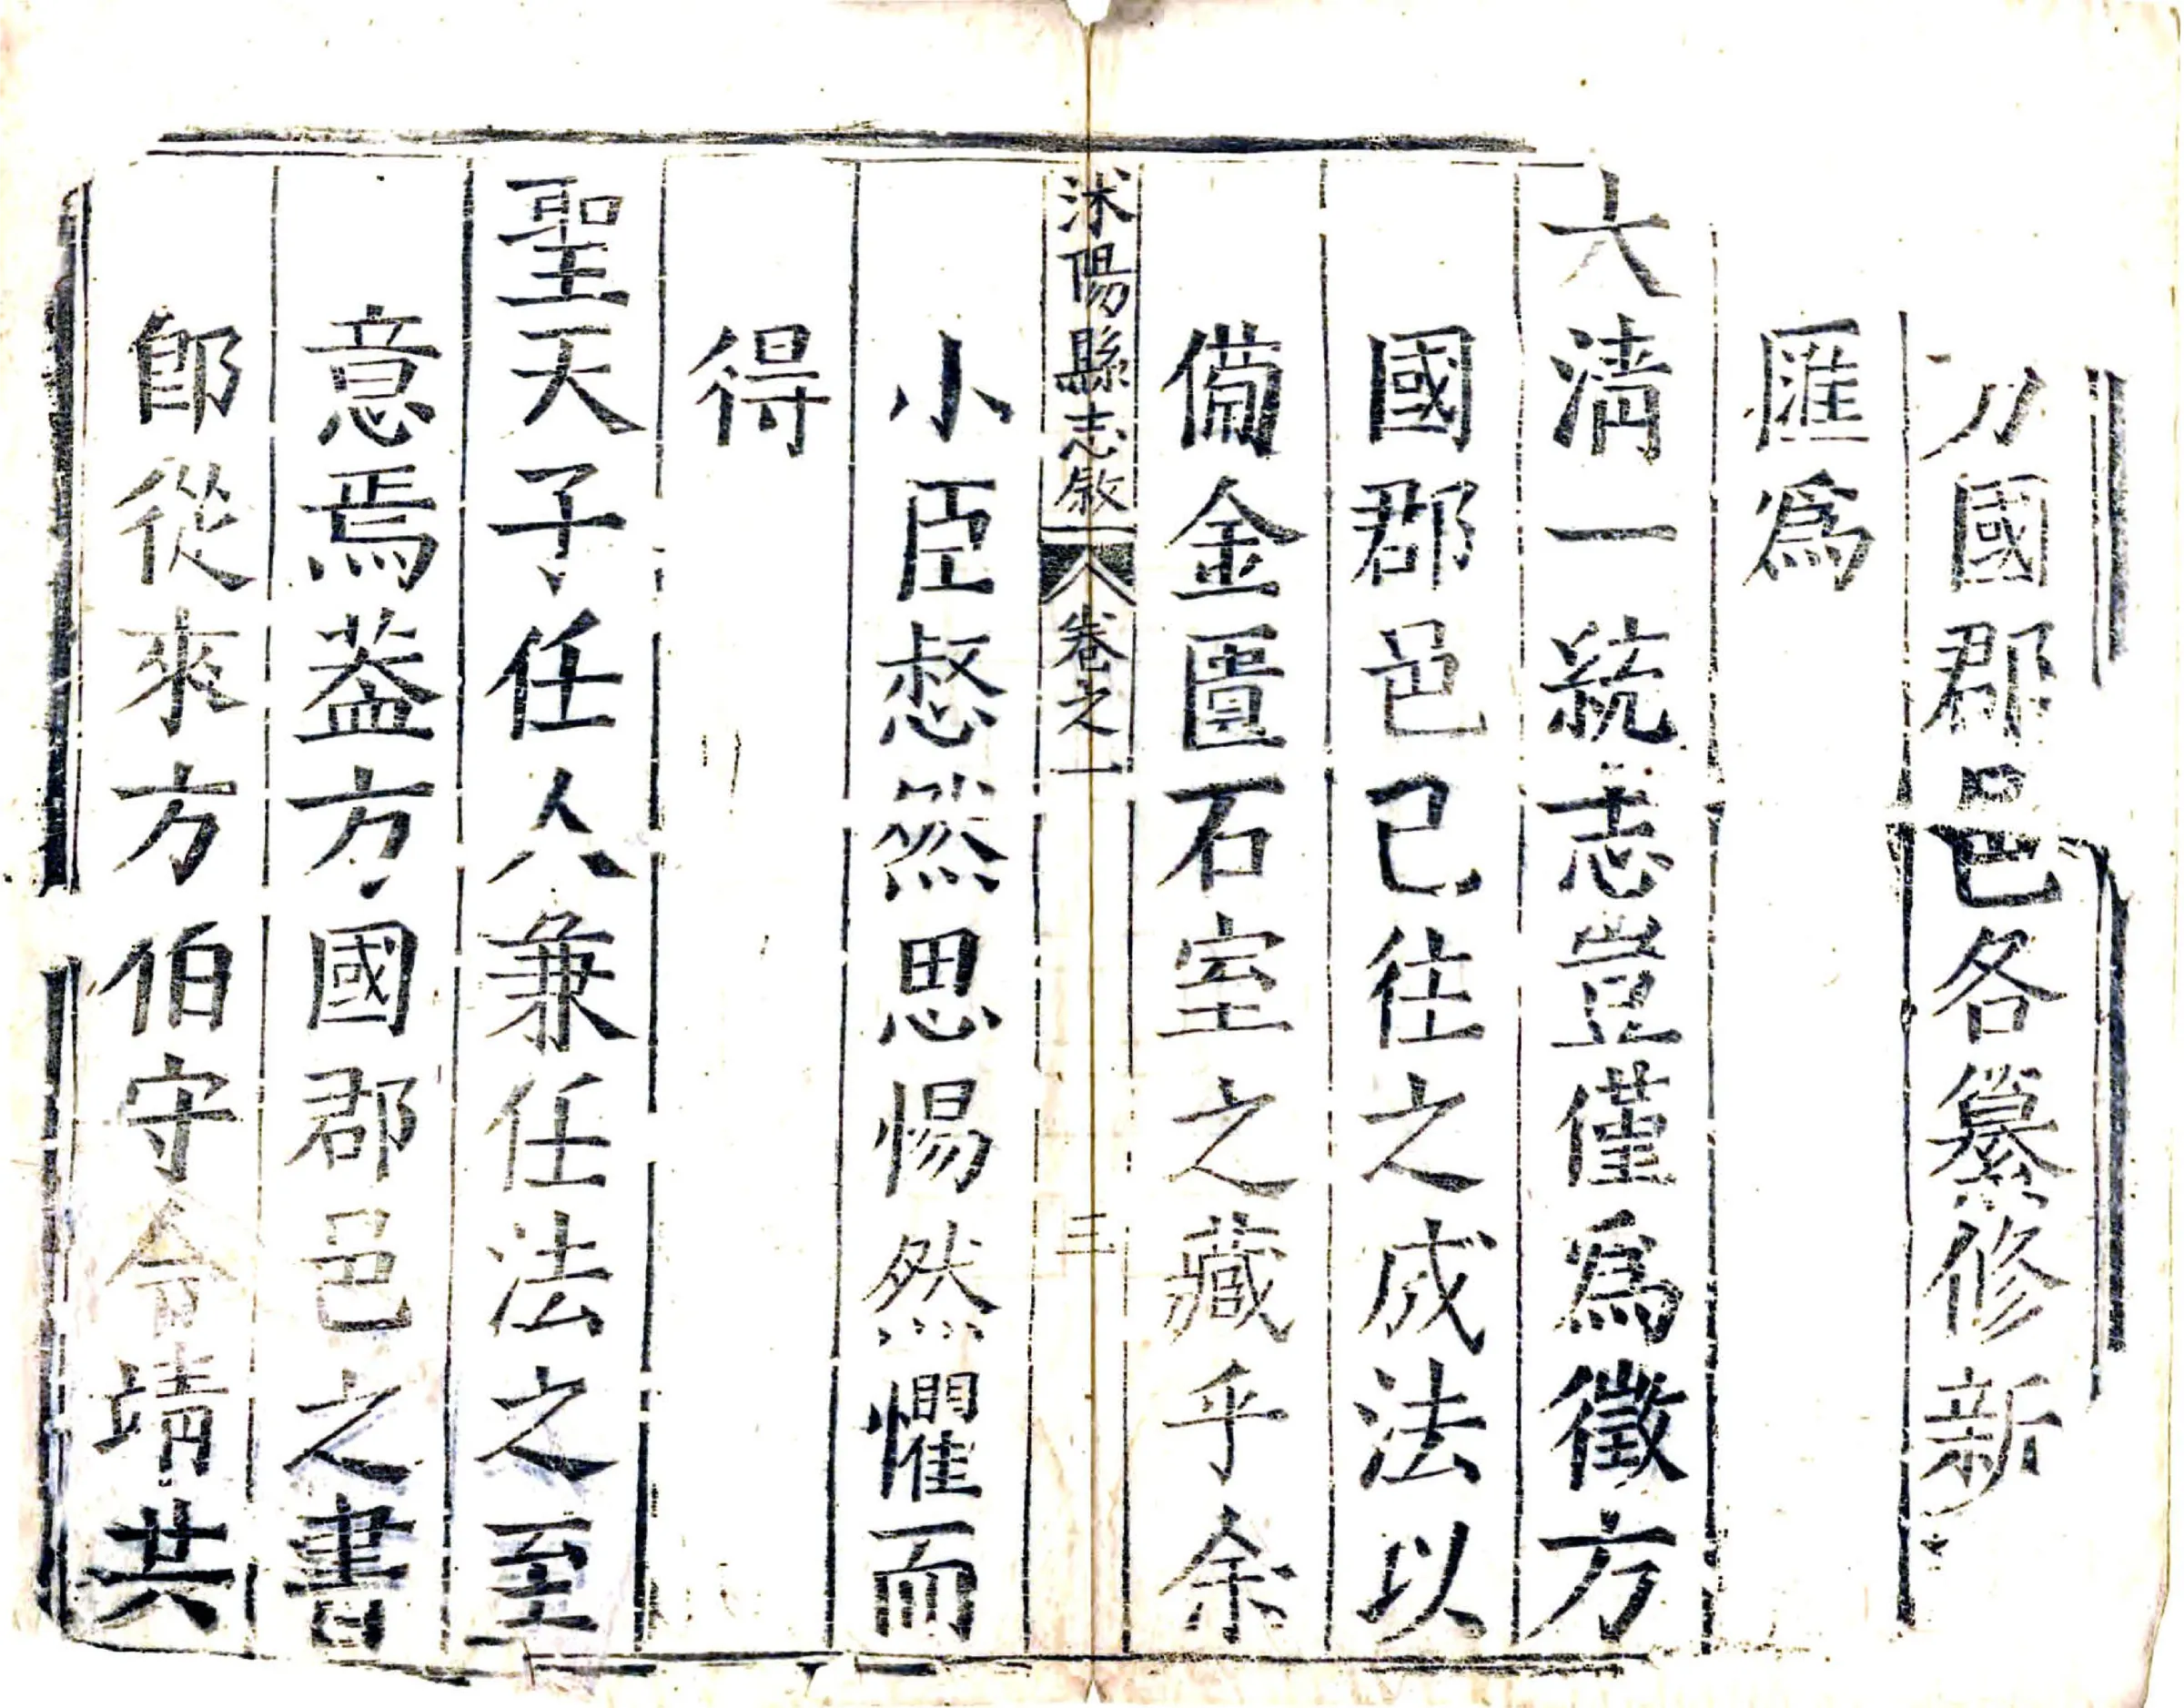 方國郡邑各纂修新
匯爲
大清一統志豈僅爲徵方
國郡邑已徃之成法以
備金匱石室之藏乎余
沭陽縣志敘 卷之一 三
小臣惄然思惕然懼而
得
聖天子任人兼任法之至
意焉葢方國郡邑之書
卽從來方伯守令靖共